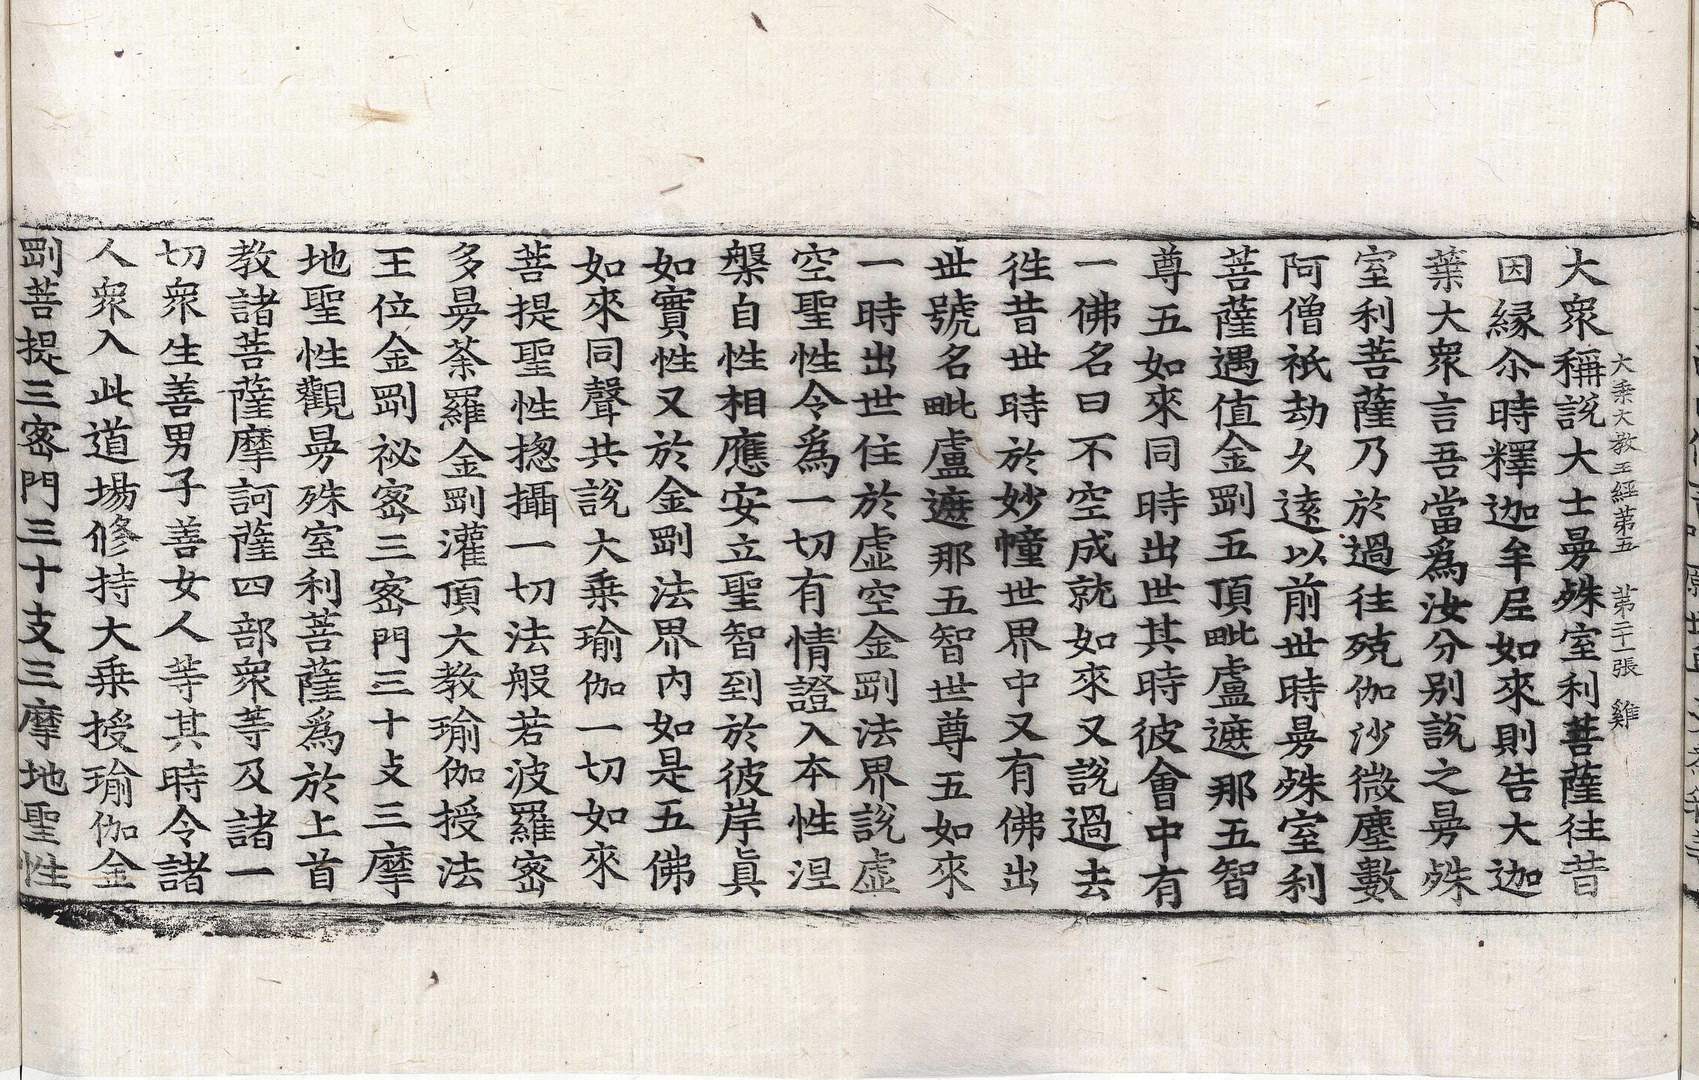 大乘大教王經第五　第二十一張　雞
大衆稱說大士曼殊室利菩薩往昔
因緣尒時釋迦牟尼如來則告大迦
葉大衆言吾當爲汝分別說之曼殊
室利菩薩乃於過往殑伽沙微塵數
阿僧祇劫久遠以前世時曼殊室利
菩薩遇值金剛五頂毗盧遮那五智
尊五如來同時出世其時彼會中有
一佛名曰不空成就如來又說過去
往昔世時於妙幢世界中又有佛出
世號名毗盧遮那五智世尊五如來
一時出世住於虛空金剛法界說虛
空聖性令爲一切有情證入本性涅
槃自性相應安立聖智到於彼岸眞
如實性又於金剛法界內如是五佛
如來同聲共說大乘瑜伽一切如來
菩提聖性揔攝一切法般若波羅蜜
多曼荼羅金剛灌頂大教瑜伽授法
王位金剛祕密三密門三十支三摩
地聖性觀曼殊室利菩薩爲於上首
教諸菩薩摩訶薩四部衆等及諸一
切衆生善男子善女人等其時令諸
人衆入此道場修持大乘授瑜伽金
剛菩提三密門三十支三摩地聖性